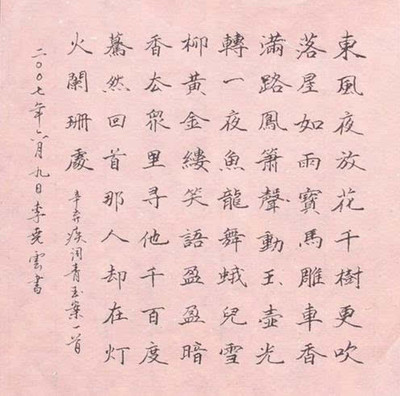 東風夜放花千樹更吹
落星如雨寶馬雕車香
滿路鳳簫聲動玉壺光
轉一夜魚龍舞蛾兒雪
柳黃金縷笑語盈盈暗
香去眾里尋他千百度
驀然回首那人却在灯
火闌珊處
辛弃疾词青玉案一首
二〇〇七年六月九日李堯雲書